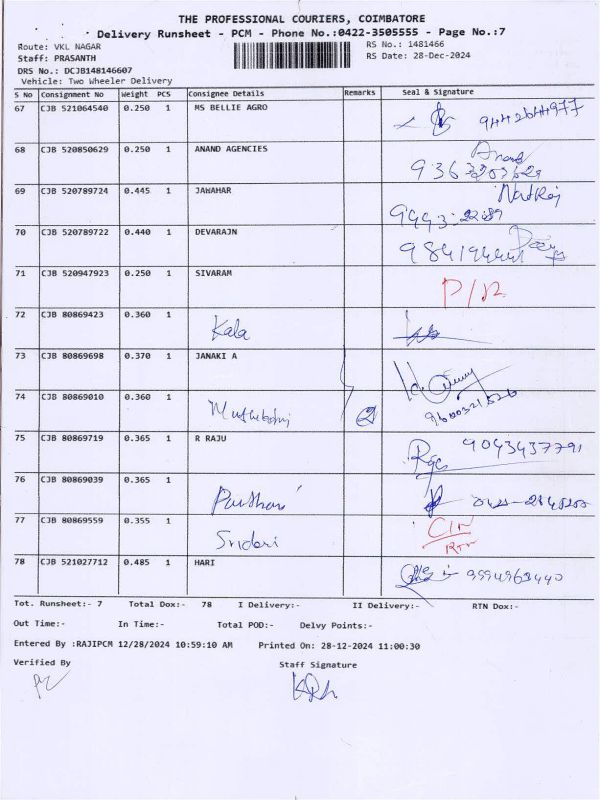 THE PROFESSIONAL COURIERS, COIMBATORE
Delivery Runsheet - PCM - Phone No.:0422-3505555 - Page No.:7
Route: VKL NAGAR RS No.: 1481466
Staff: PRASANTH RS Date: 28-Dec-2024
DRS No.: DCJB148146607
Vehicle: Two Wheeler Delivery
S No Consignment No Weight PCS Consignee Details Remarks Seal & Signature
67 CJB 521064540 0.250 1 MS BELLIE AGRO
68 CJB 520850629 0.250 1 ANAND AGENCIES Anand
69 CJB 520789724 0.445 1 JAWAHAR
70 CJB 520789722 0.440 1 DEVARAJN
71 CJB 520947923 0.250 1 SIVARAM
72 CJB 80869423 0.360 1 Kala
73 CJB 80869698 0.370 1 JANAKI A
74 CJB 80869010 0.360 1 9600321526
75 CJB 80869719 0.365 1 R RAJU 9043437791
76 CJB 80869039 0.365 1
77 CJB 80869559 0.355 1 Sridari
78 CJB 521027712 0.485 1 HARI 9994963440
Tot. Runsheet:- 7 Total Dox:- 78 I Delivery:- II Delivery:- RTN Dox:-
Out Time:- In Time:- Total POD:- Delvy Points:-
Entered By :RAJIPCM 12/28/2024 10:59:10 AM Printed On: 28-12-2024 11:00:30
Verified By Staff Signature